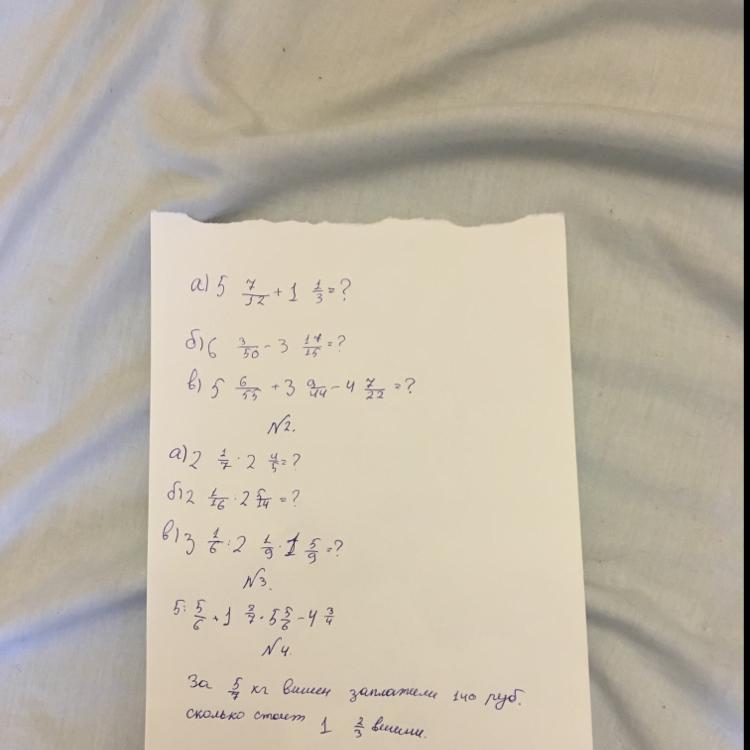 а) 5 7/12 + 1 1/3 = ?
б) 6 3/50 - 3 17/15 = ?
в) 5 6/55 + 3 9/44 - 4 7/22 = ?
N2.
а) 2 1/7 · 2 4/5 = ?
б) 2 1/16 · 2 5/14 = ?
в) 3 1/6 : 2 1/9 · 1 5/9 = ?
N3.
5 : 5/6 + 1 2/7 · 5 5/6 - 4 3/4
N4.
За 5/7 кг вишен заплатили 140 руб.
сколько стоит 1 2/3 вишни.